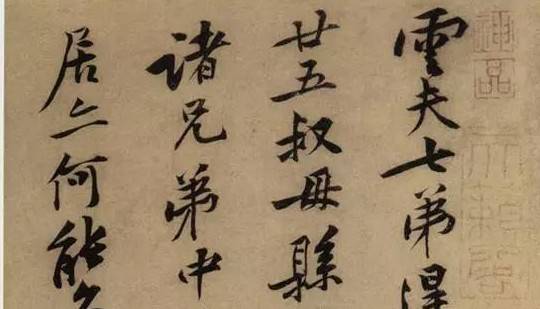 雲夫七弟得
廿五叔母縣
諸兄弟中
居亦何能久